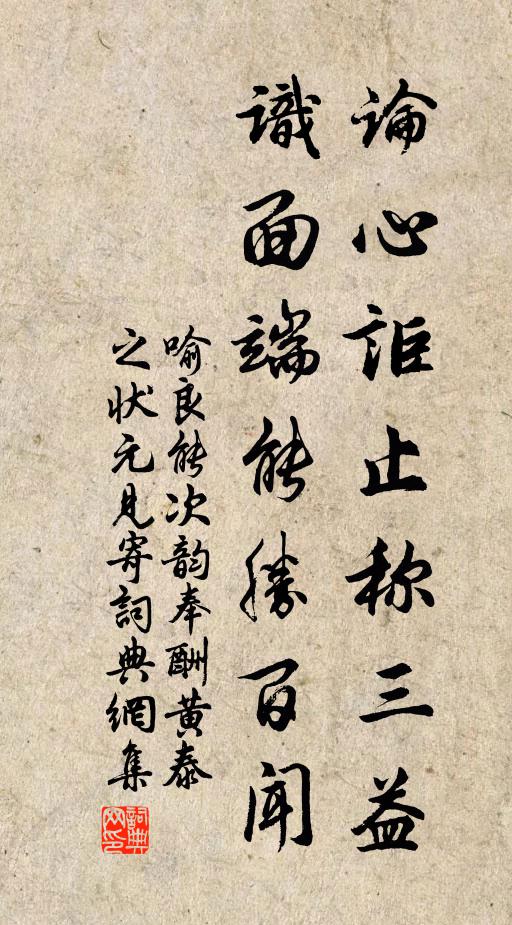 論心詎止称三益
識面端能勝百聞
喻良能次韵奉酬黄泰
之状元見寄詞典網集
詞典网印